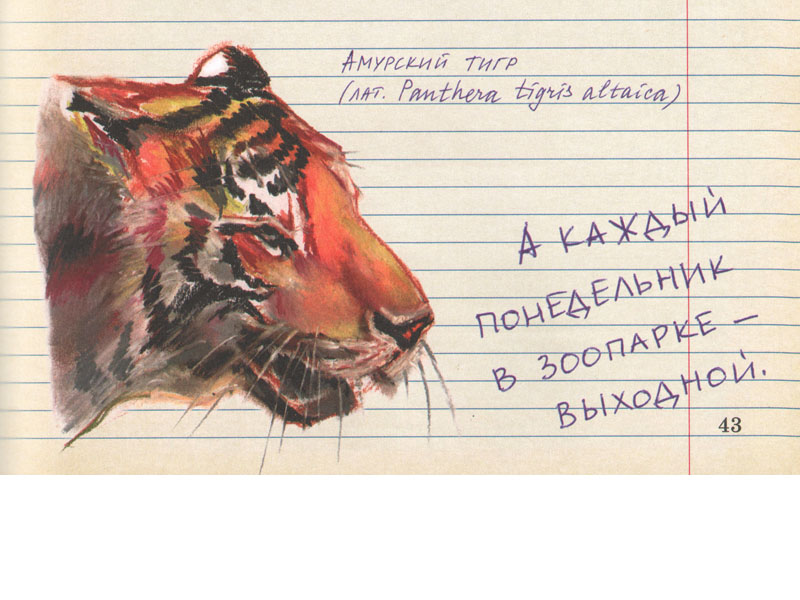 Амурский тигр
(лат. Panthera tigris altaica)
А КАЖДЫЙ
ПОНЕДЕЛЬНИК
В ЗООПАРКЕ —
ВЫХОДНОЙ.
43